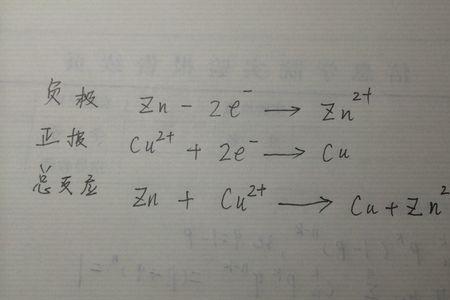 负极 Zn - 2e⁻ → Zn²⁺
正极 Cu²⁺ + 2e⁻ → Cu
总反应 Zn + Cu²⁺ → Cu + Zn²